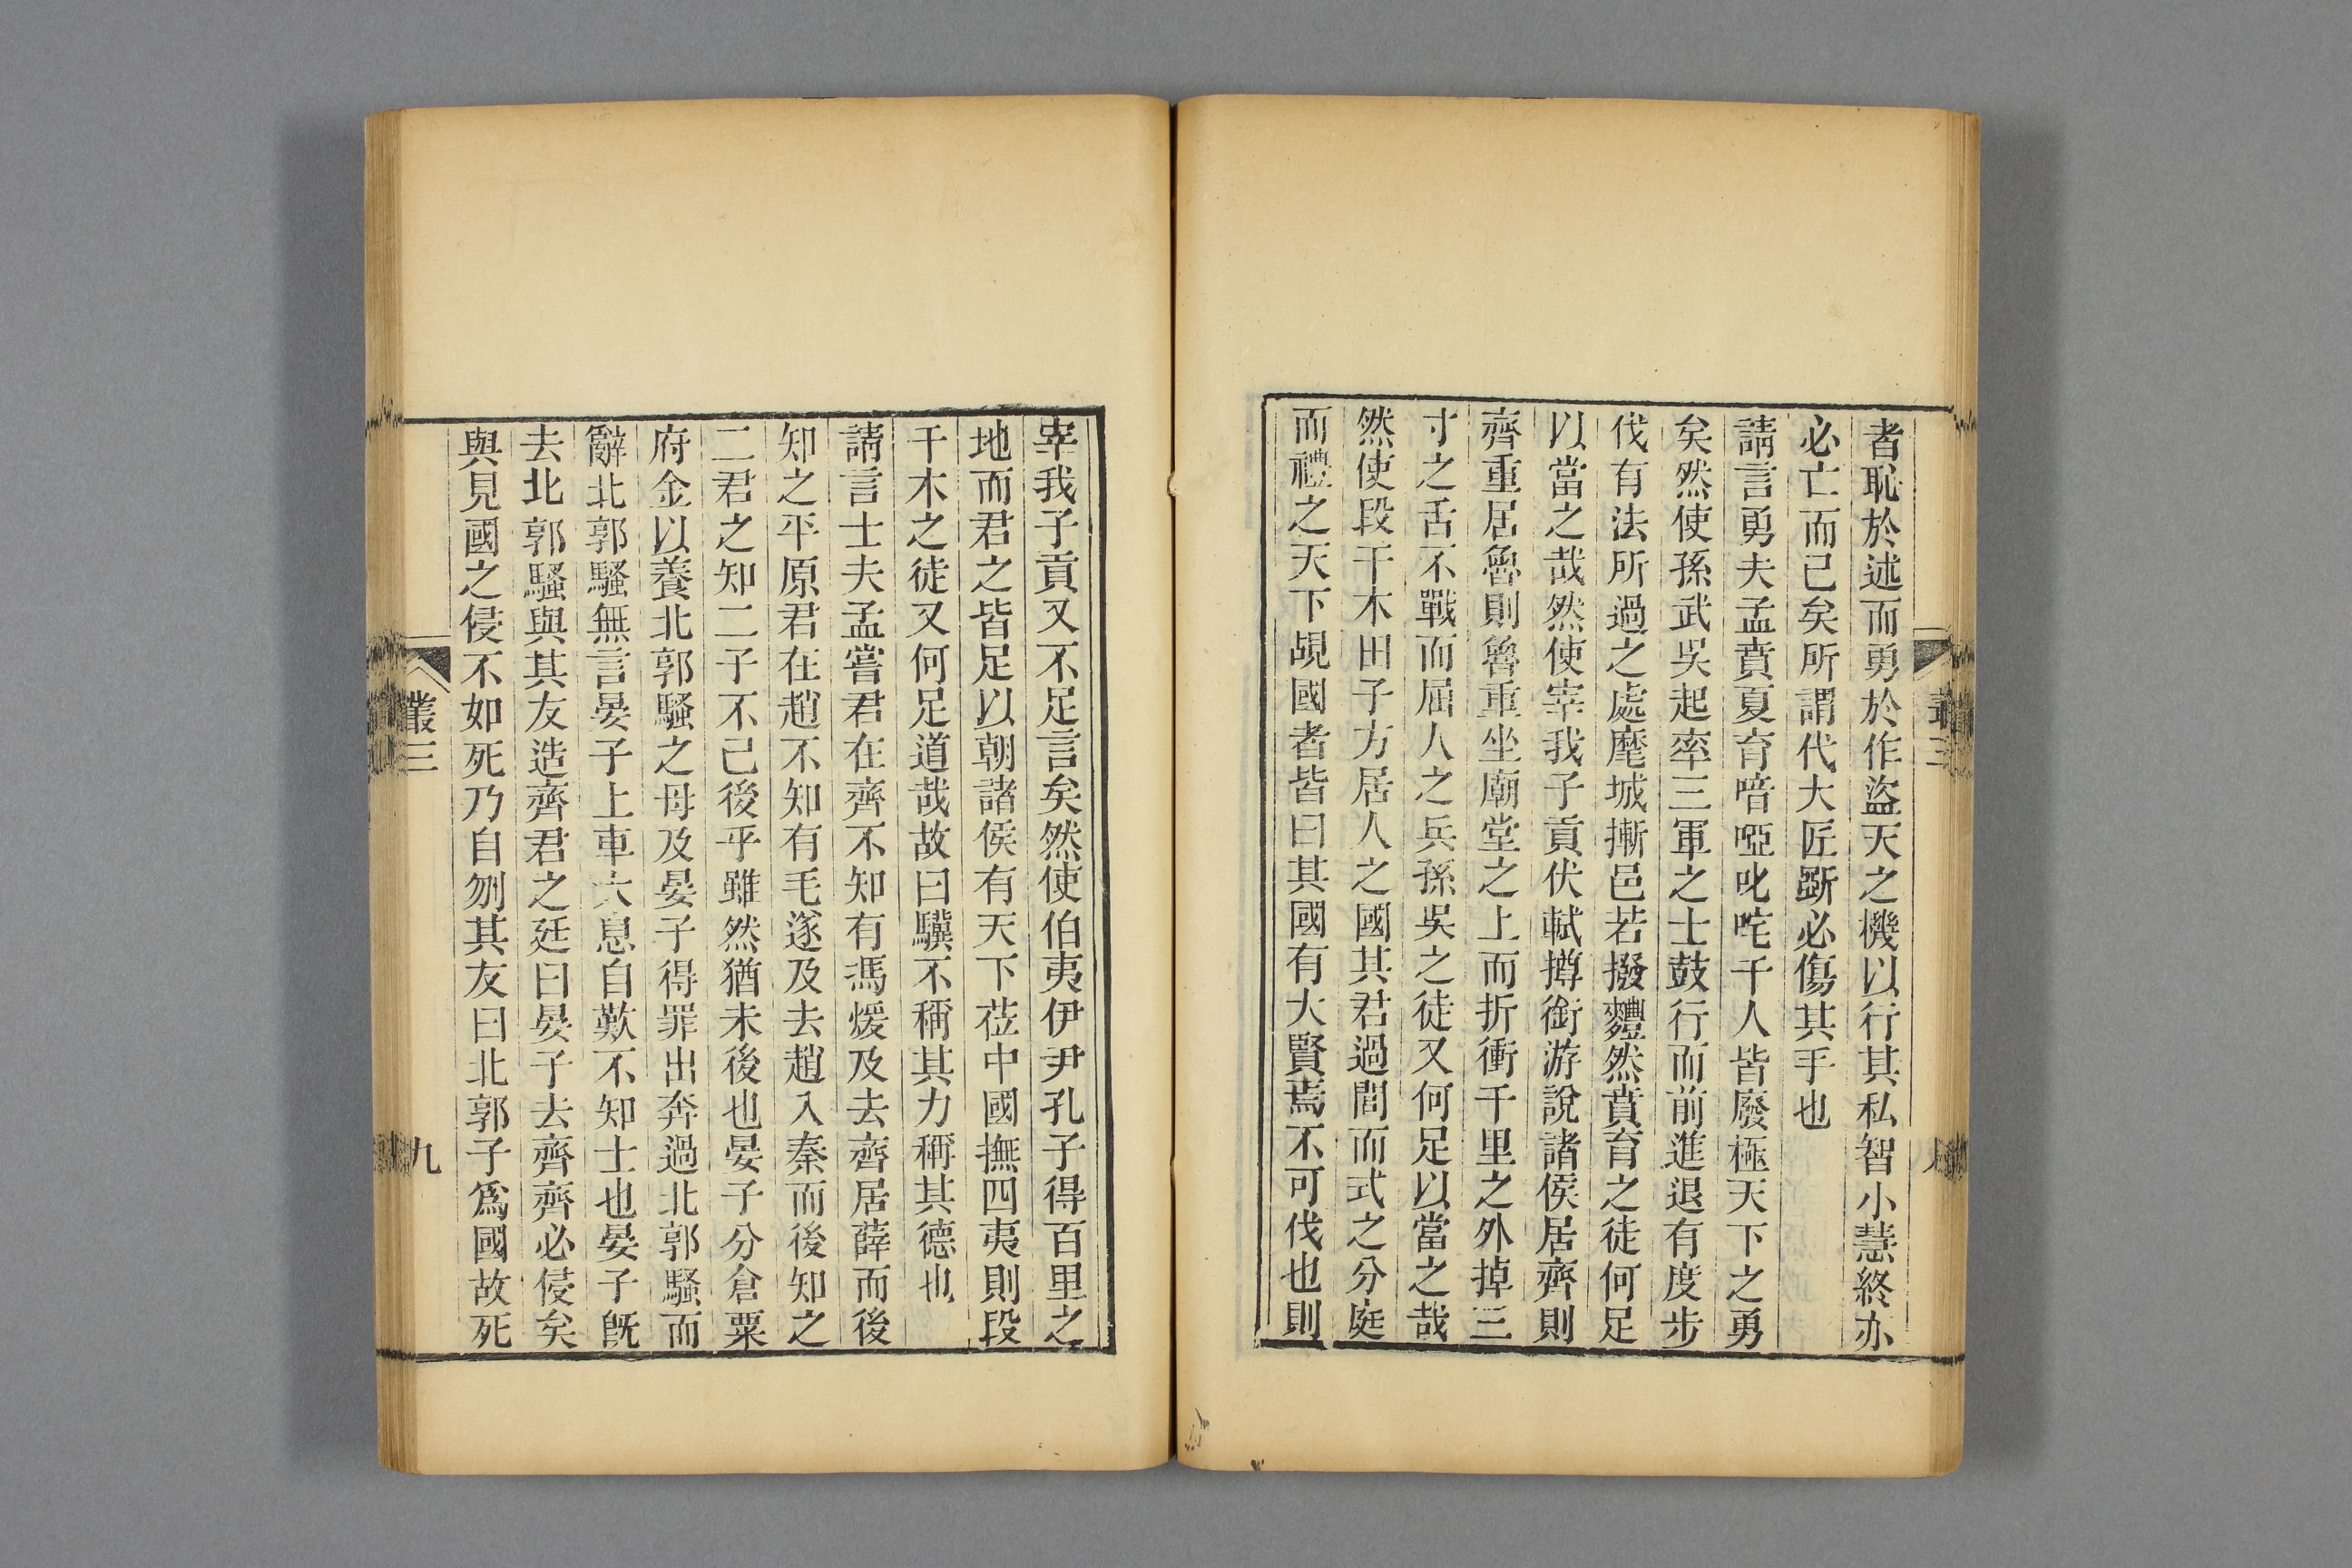 者恥於述而勇於作盜天之機以行其私智小慧終亦
必亡而已矣所謂代大匠斲必傷其手也
請言勇夫孟賁夏育喑啞叱咤千人皆廢極天下之勇
矣然使孫武吳起率三軍之士鼓行而前進退有度步
伐有法所過之處麾城摲邑若撥麷然賁育之徒何足
以當之哉然使宰我子貢伏軾撙銜游說諸侯居齊則
齊重居魯則魯重坐廟堂之上而折衝千里之外掉三
寸之舌不戰而屈人之兵孫吳之徒又何足以當之哉
然使段干木田子方居人之國其君過閭而式之分庭
而禮之天下覘國者皆曰其國有大賢焉不可伐也則
叢三
宰我子貢又不足言矣然使伯夷伊尹孔子得百里之
地而君之皆足以朝諸侯有天下莅中國撫四夷則段
干木之徒又何足道哉故曰驥不稱其力稱其德也
請言士夫孟嘗君在齊不知有馮煖及去齊居薛而後
知之平原君在趙不知有毛遂及去趙入秦而後知之
二君之知二子不已後乎雖然猶未後也晏子分倉粟
府金以養北郭騷之母及晏子得罪出奔過北郭騷而
辭北郭騷無言晏子上車太息自歎不知士也晏子旣
去北郭騷與其友造齊君之廷曰晏子去齊齊必侵矣
與見國之侵不如死乃自刎其友曰北郭子爲國故死
叢三
九